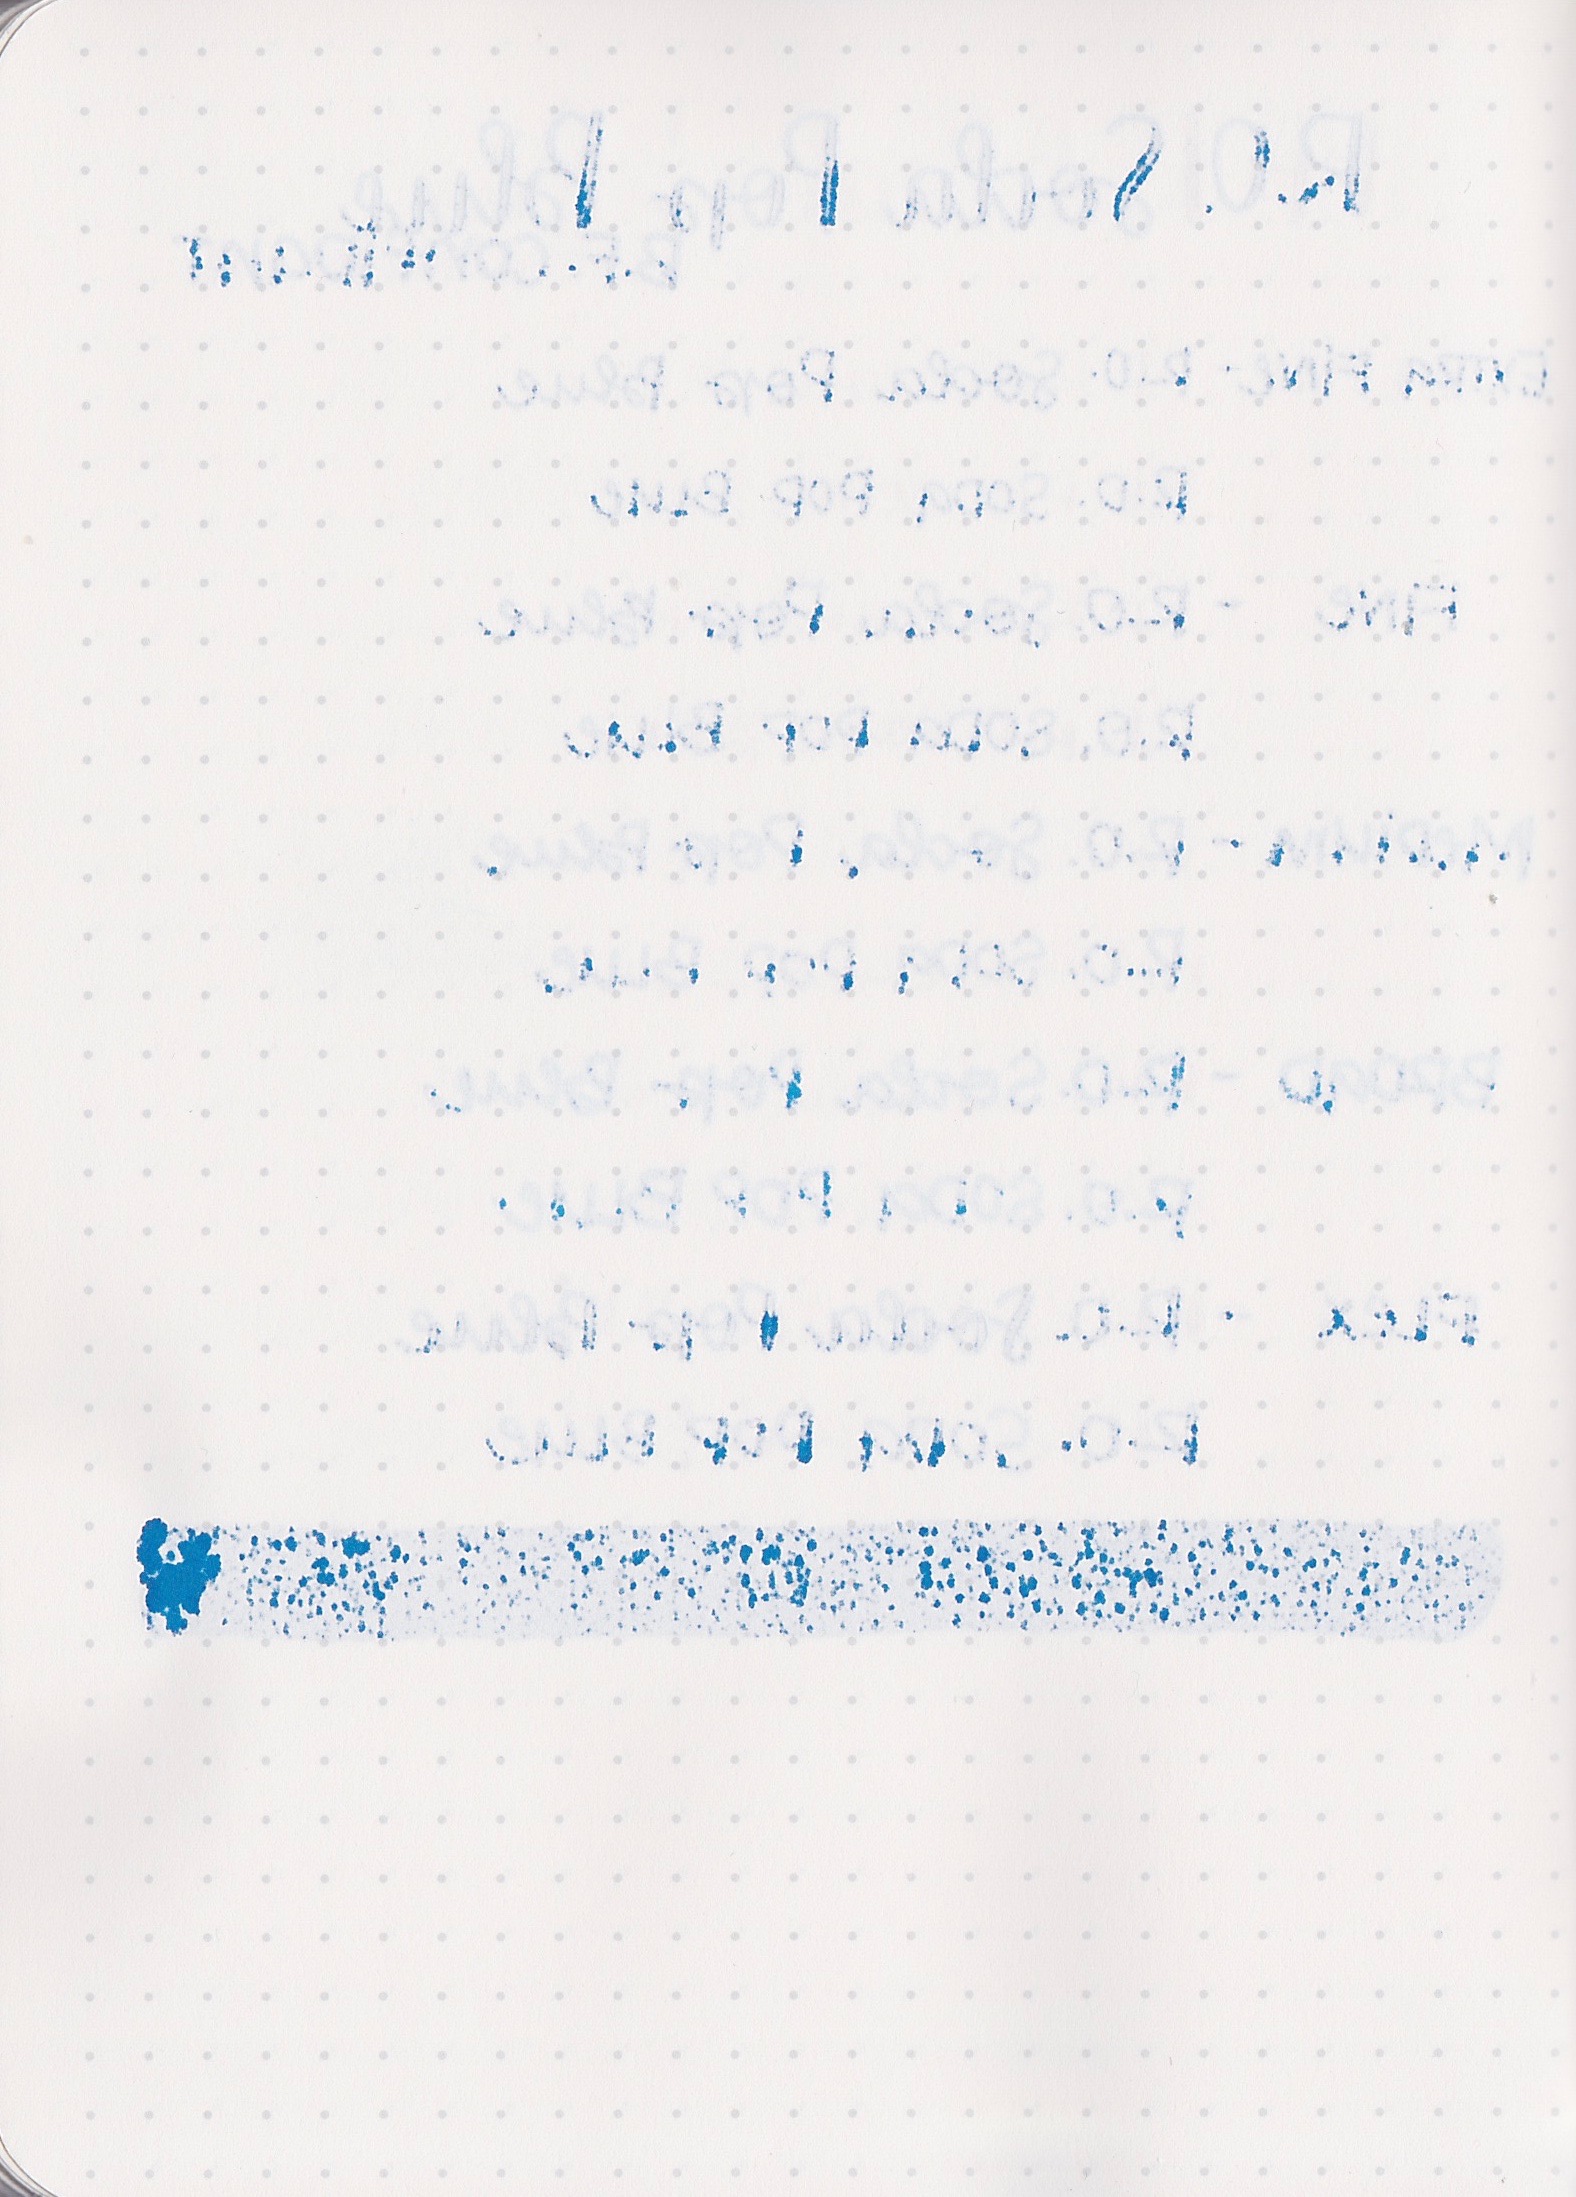 R.O. Soda Pop Blue
B.F. CONTRACT
EXTRA FINE - R.O. Soda Pop Blue
R.O. SODA POP BLUE
FINE - R.O. Soda Pop Blue
R.O. SODA POP BLUE
MEDIUM - R.O. Soda Pop Blue
R.O. SODA POP BLUE
BROAD - R.O. Soda Pop Blue
R.O. SODA POP BLUE
FLEX - R.O. Soda Pop Blue
R.O. SODA POP BLUE